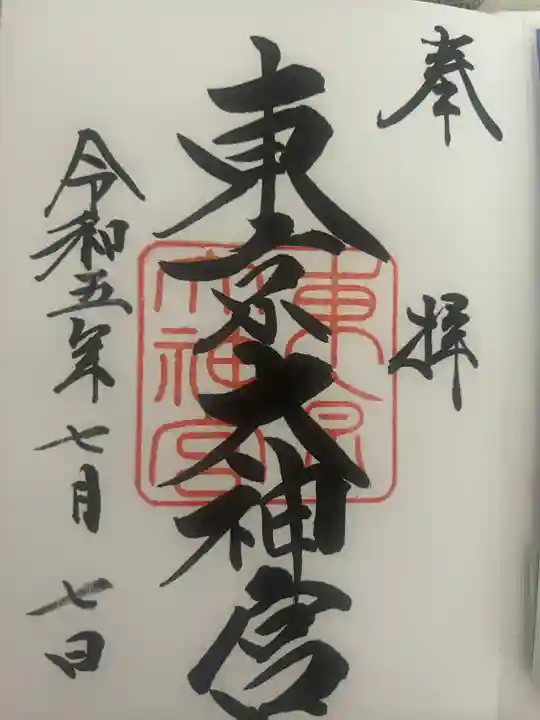 奉拝
東京大神宮
東京
大神宮
令和五年七月七日